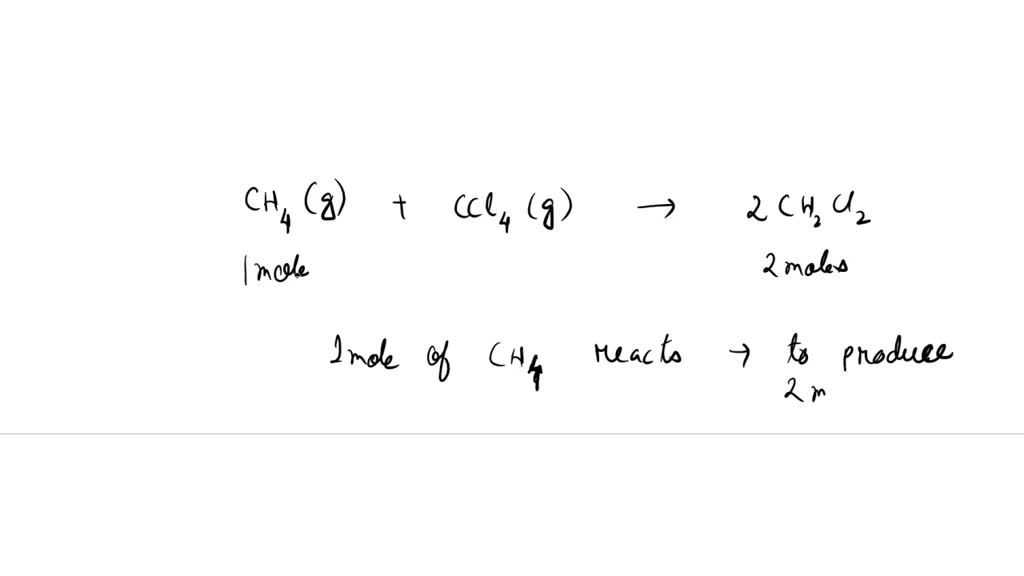 CH₄ (g) + CCl₄ (g) → 2 CH₂Cl₂
1 mole 2 moles
1 mole of CH₄ reacts → to produce
2 m